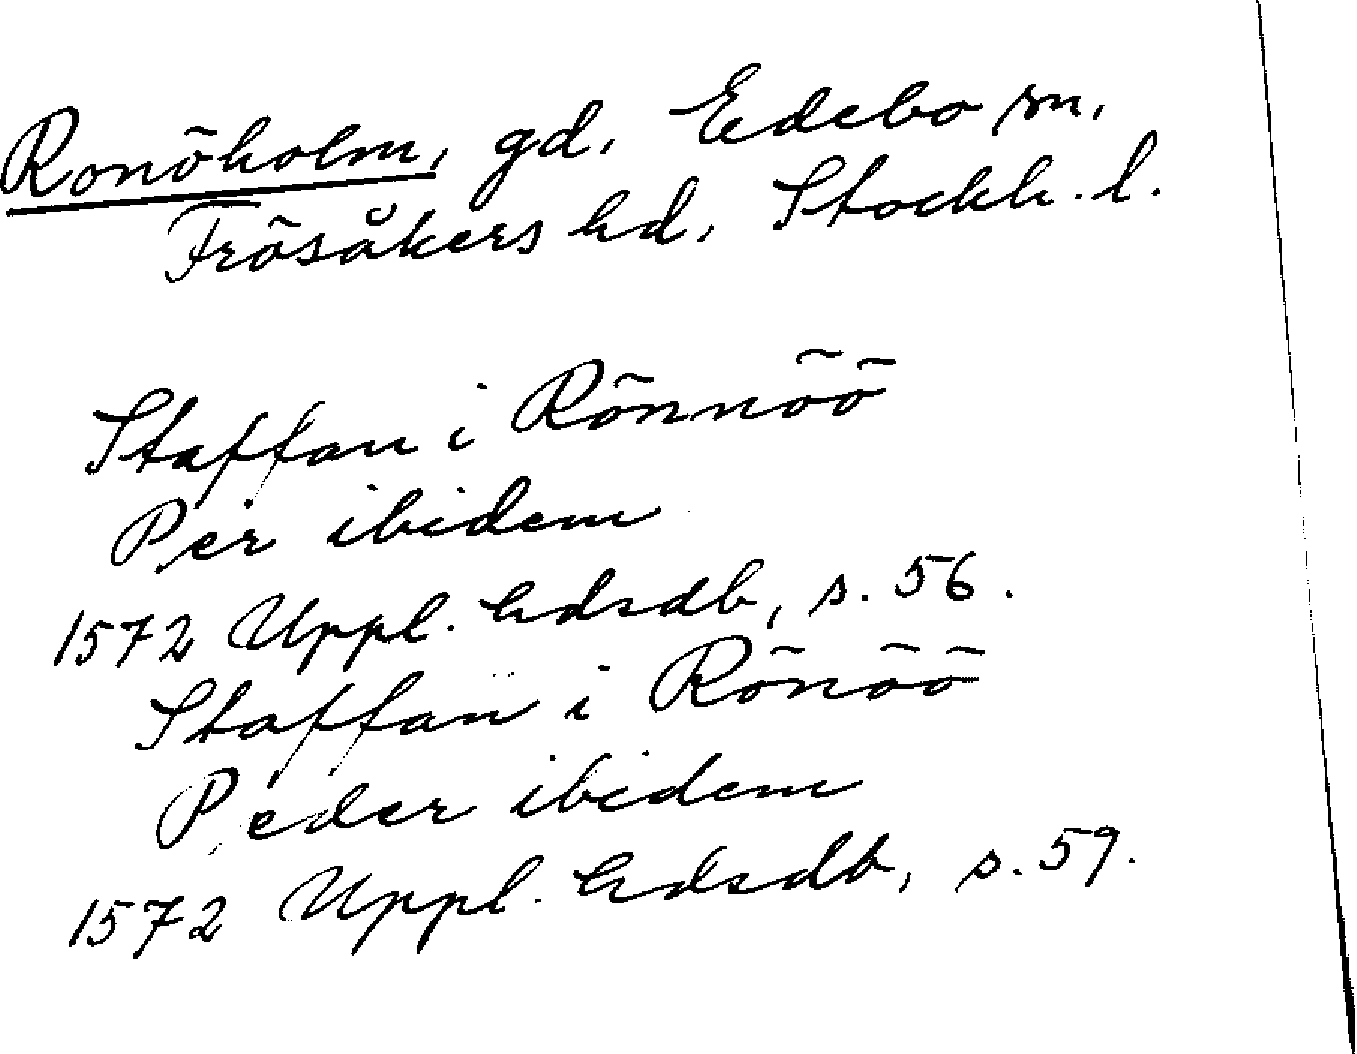 Ronöholm, gd, Edebo sn,
Frösåkers hd, Stockh. l.
Staffan i Rönnöö
Per ibidem
1572 Uppl. hdsdb, s. 56.
Staffan i Rönöö
Peder ibidem
1572 Uppl. hdsdb, s. 59.